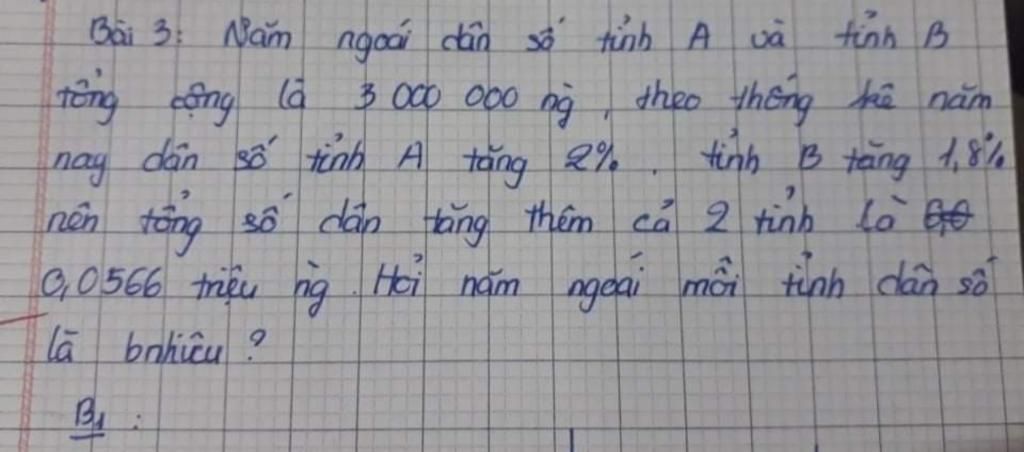 Bài 3: Năm ngoái dân số tỉnh A và tỉnh B
tổng cộng là 3 000 000 ng, theo thống kê năm
nay dân số tỉnh A tăng 2%. tỉnh B tăng 1,8%
nên tổng số dân tăng thêm cả 2 tỉnh là
0,0566 triệu ng. Hỏi năm ngoái mỗi tỉnh dân số
là bnhiêu?
B1: